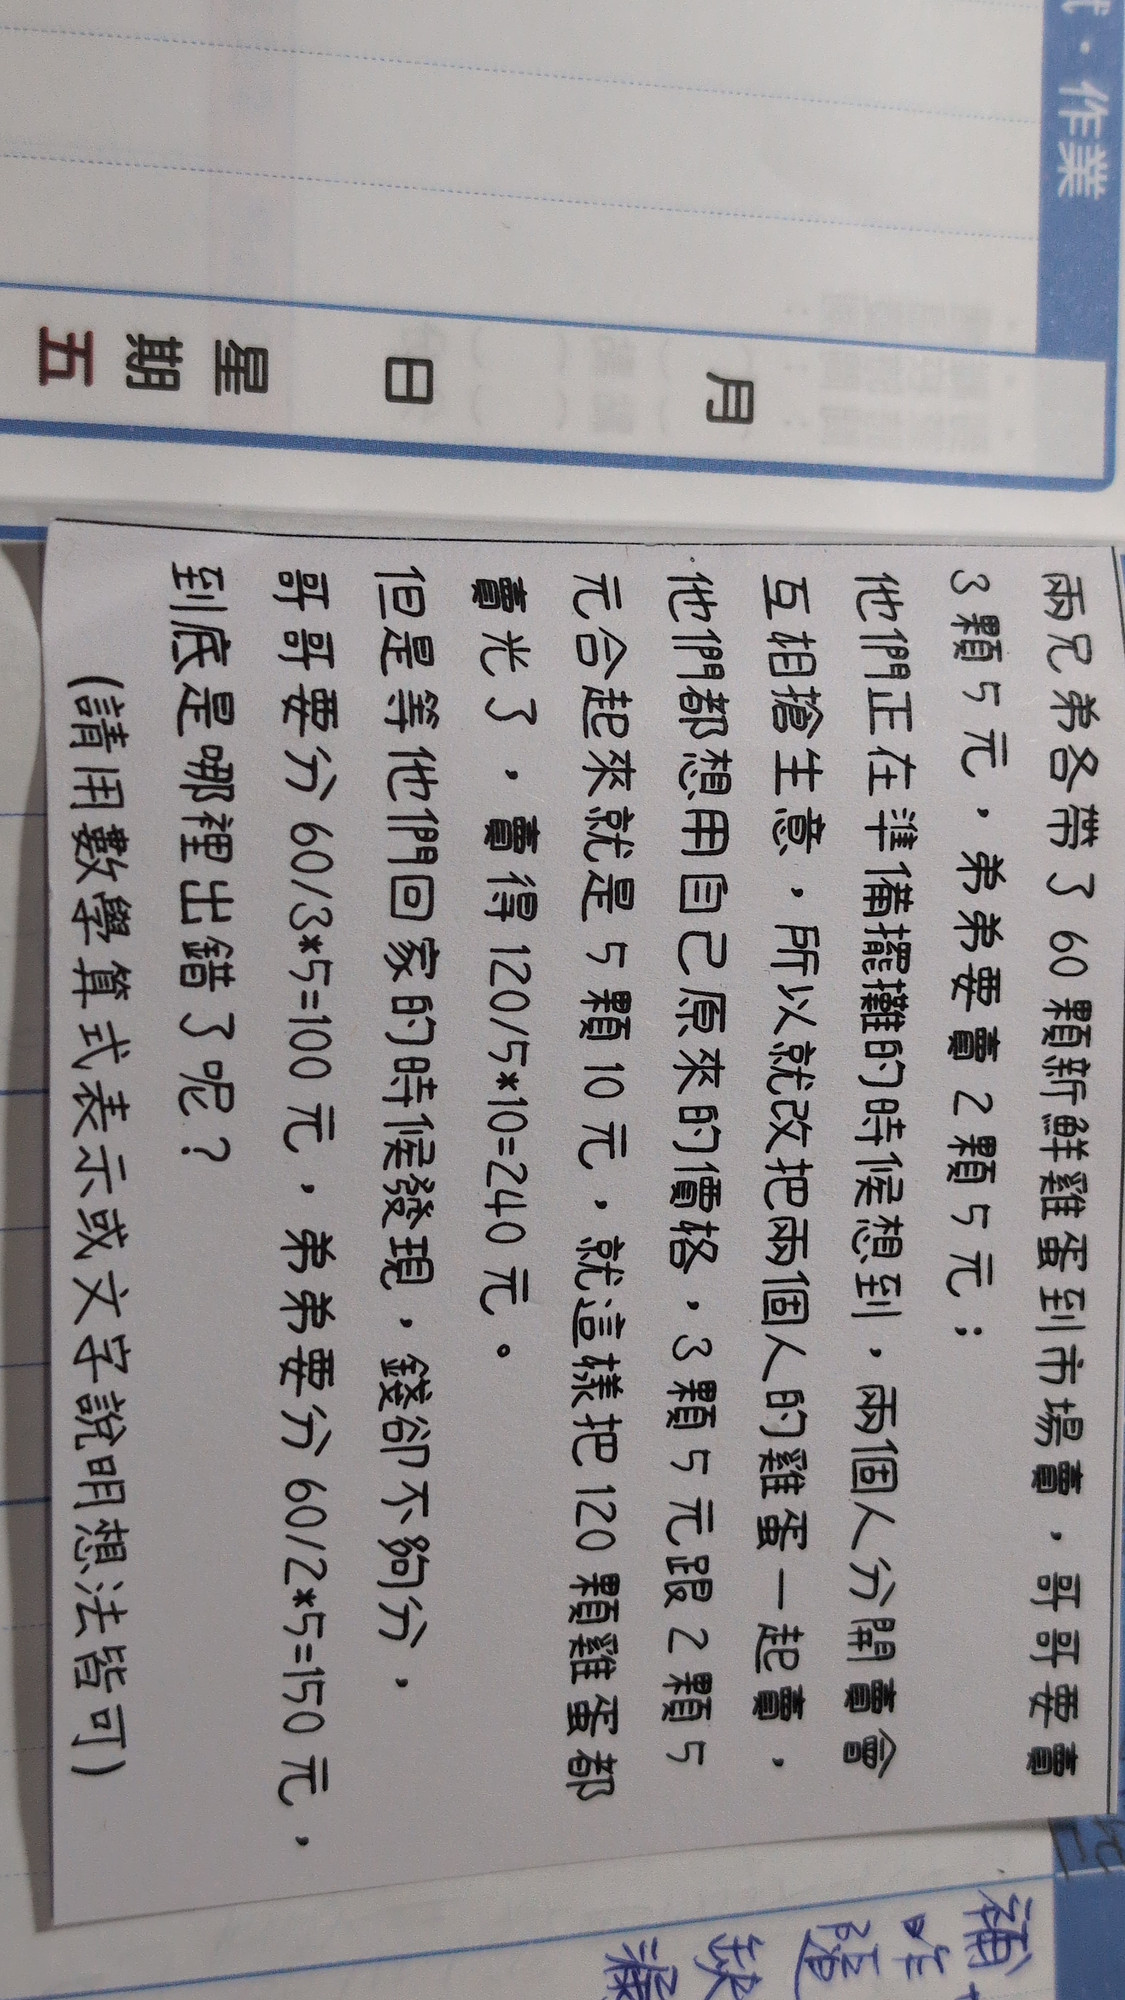 ・作業
月
日
星
期
五
兩兄弟各帶了60顆新鮮雞蛋到市場賣，哥哥要賣
3顆5元，弟弟要賣2顆5元；
他們正在準備擺攤的時候想到，兩個人分開賣會
互相搶生意，所以就改把兩個人的雞蛋一起賣，
他們都想用自己原來的價格，3顆5元跟2顆5
元合起來就是5顆10元，就這樣把120顆雞蛋都
賣光了，賣得120/5*10=240元。
但是等他們回家的時候發現，錢卻不夠分，
哥哥要分60/3*5=100元，弟弟要分60/2*5=150元，
到底是哪裡出錯了呢？
(請用數學算式表示或文字說明想法皆可)
補
昨
隨
缺